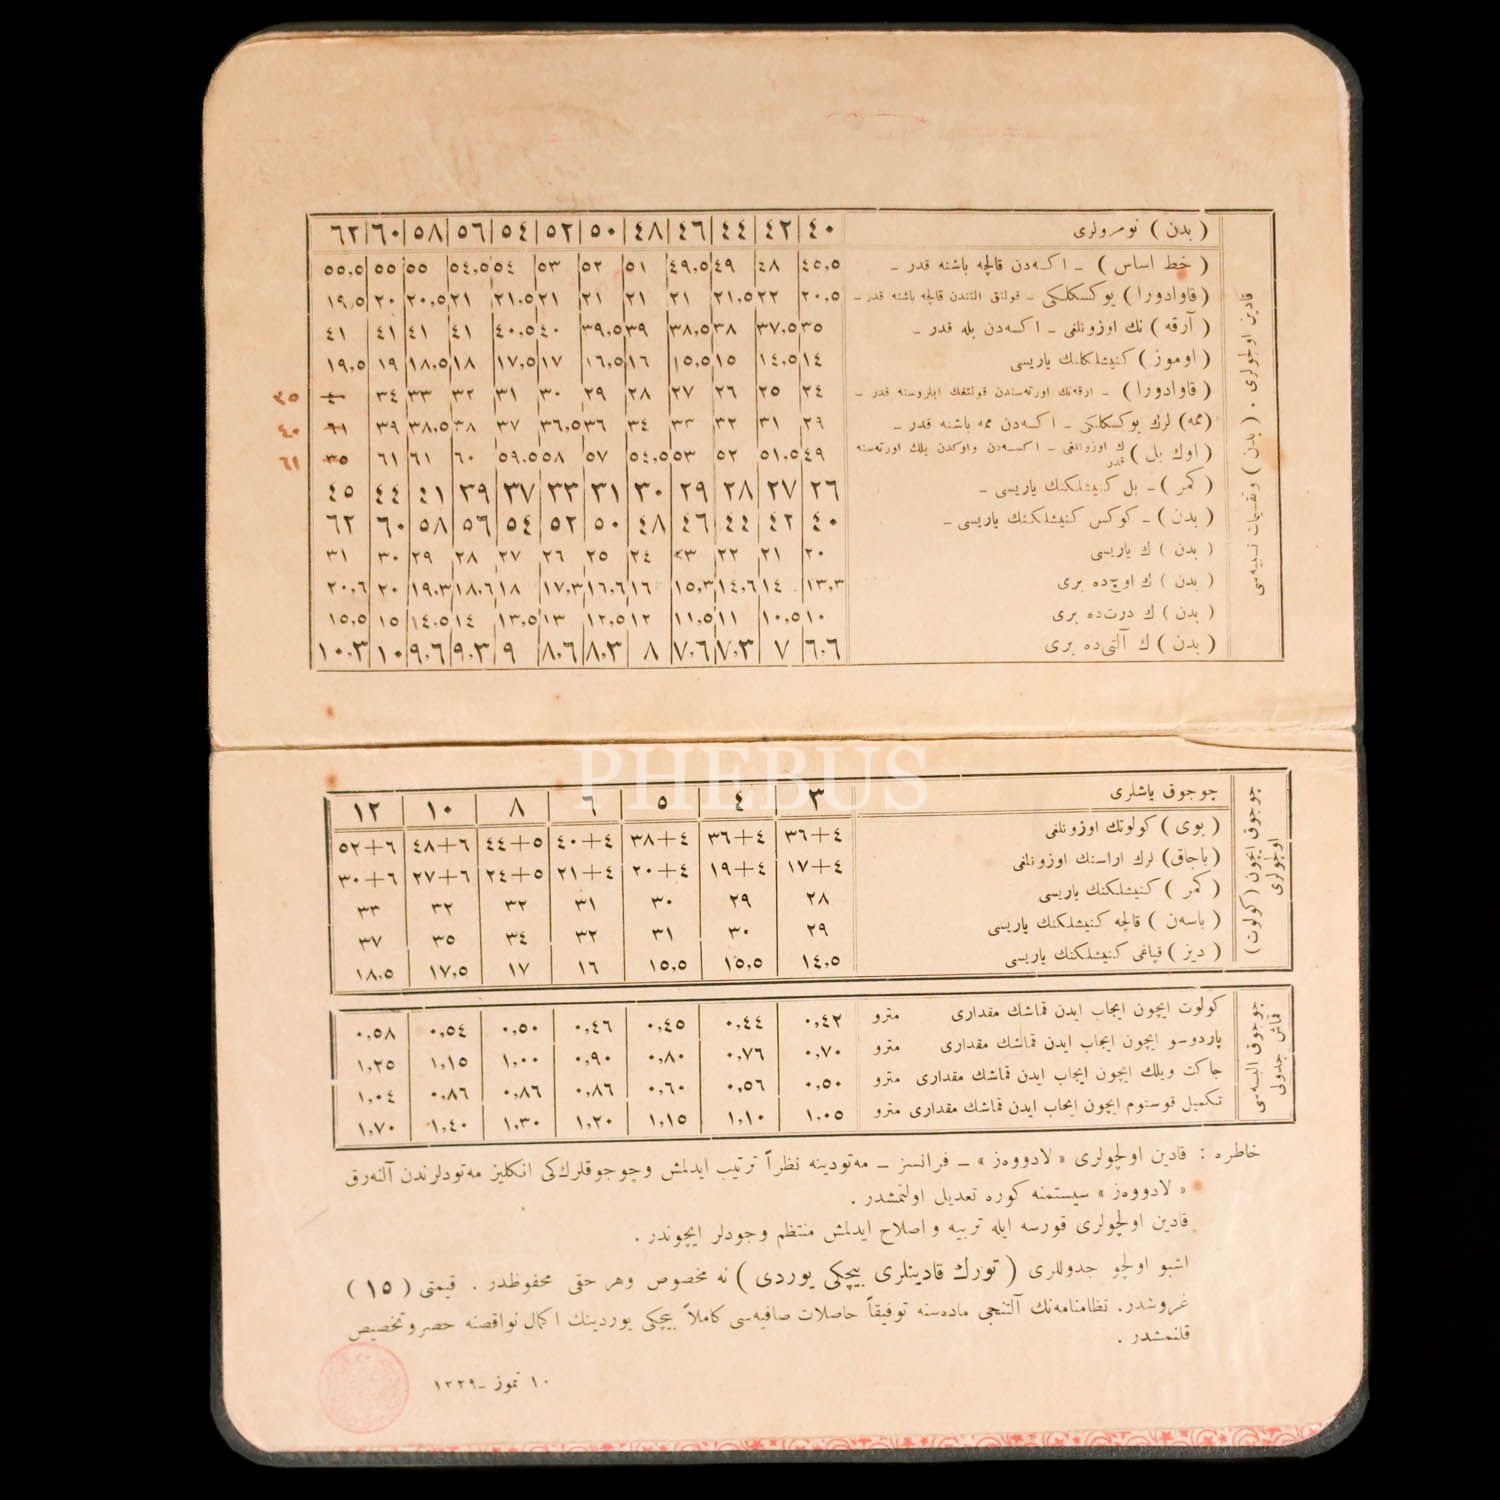 ( بدن ) نومرولری ٤٠ ٤٢ ٤٤ ٤٦ ٤٨ ٥٠ ٥٢ ٥٤ ٥٦ ٥٨ ٦٠ ٦٢
( خط اساس ) ـ اكسه‌دن قالچه باشنه قدر ـ ٤٥,٥ ٤٨ ٤٩ ٤٩,٥ ٥١ ٥٢ ٥٣ ٥٤ ٥٤,٥ ٥٥ ٥٥ ٥٥,٥
( قاوادورا ) يوكسكلكی ـ قولتق التندن قالچه باشنه قدر ـ ٢٠,٥ ٢٢ ٢١,٥ ٢١ ٢١ ٢١ ٢١ ٢١,٥ ٢١ ٢٠,٥ ٢٠ ١٩,٥
( آرقه ) نك اوزونلغی ـ اكسه‌دن بله قدر ـ ٣٥ ٣٧,٥ ٣٨ ٣٨,٥ ٣٩ ٣٩,٥ ٤٠ ٤٠,٥ ٤١ ٤١ ٤١ ٤١
( اوموز ) كنيشلكنك ياريسی ١٤ ١٤,٥ ١٥ ١٥,٥ ١٦ ١٦,٥ ١٧ ١٧,٥ ١٨ ١٨,٥ ١٩ ١٩,٥
( قاوادورا ) ـ ارقه‌نك اورته‌سندن قولتغك ايلروسنه قدر ـ ٢٤ ٢٥ ٢٦ ٢٧ ٢٨ ٢٩ ٣٠ ٣١ ٣٢ ٣٣ ٣٤ ٤٠ ٣٥
(ممه) لرك يوكسكلكی ـ اكسه‌دن ممه باشنه قدر ـ ٢٩ ٣١ ٣٢ ٣٣ ٣٤ ٣٦ ٣٦,٥ ٣٧ ٣٨ ٣٨,٥ ٣٩ ٦١ ٤٠
( اوك بل ) ك اوزونلغی ـ اكسه‌دن واوكدن بلك اورته‌سنه قدر ٤٩ ٥١,٥ ٥٢ ٥٣ ٥٤,٥ ٥٧ ٥٨ ٥٩,٥ ٦٠ ٦١ ٦١ ٣٥ ٦١
( كمر ) ـ بل كنيشلكنك ياريسی ـ ٢٦ ٢٧ ٢٨ ٢٩ ٣٠ ٣١ ٣٣ ٣٧ ٣٩ ٤١ ٤٤ ٤٥
( بدن ) ـ كوكس كنيشلكنك ياريسی ـ ٤٠ ٤٢ ٤٤ ٤٦ ٤٨ ٥٠ ٥٢ ٥٤ ٥٦ ٥٨ ٦٠ ٦٢
( بدن ) ك ياريسی ٢٠ ٢١ ٢٢ ٢٣ ٢٤ ٢٥ ٢٦ ٢٧ ٢٨ ٢٩ ٣٠ ٣١
( بدن ) ك اوچ‌ده بری ١٣,٣ ١٤ ١٤,٦ ١٥,٣ ١٦ ١٦,٦ ١٧,٣ ١٨ ١٨,٦ ١٩,٣ ٢٠ ٢٠,٦
( بدن ) ك درت‌ده بری ١٠ ١٠,٥ ١١ ١١,٥ ١٢ ١٢,٥ ١٣ ١٣,٥ ١٤ ١٤,٥ ١٥ ١٥,٥
( بدن ) ك آلتی‌ده بری ٦,٦ ٧ ٧,٣ ٧,٦ ٨ ٨,٣ ٨,٦ ٩ ٩,٣ ٩,٦ ١٠ ١٠,٣
قادين اولچولری . ( بدن )
چوجوق ايچون ( كولوت )
اولچولری
چوجوق ياشلری ٣ ٤ ٥ ٦ ٨ ١٠ ١٢
( بوی ) كولوتك اوزونلغی ٣٦+٤ ٣٦+٤ ٣٨+٤ ٤٠+٤ ٤٤+٥ ٤٨+٦ ٥٢+٦
(باجاق) لرك اراسنك اوزونلغی ١٧+٤ ١٩+٤ ٢٠+٤ ٢١+٤ ٢٤+٥ ٢٧+٦ ٣٠+٦
( كمر ) كنيشلكنك ياريسی ٢٨ ٢٩ ٣٠ ٣١ ٣٢ ٣٢ ٣٣
( باسه‌ن ) قالچه كنيشلكنك ياريسی ٢٩ ٣٠ ٣١ ٣٢ ٣٤ ٣٥ ٣٧
( ديز ) قپاغی كنيشلكنك ياريسی ١٤,٥ ١٥,٥ ١٥,٥ ١٦ ١٧ ١٧,٥ ١٨,٥
چوجوق البسه‌سی
قماش جدولی
كولوت ايچون ايجاب ايدن قماشك مقداری مترو ٠,٤٢ ٠,٤٤ ٠,٤٥ ٠,٤٦ ٠,٥٠ ٠,٥٤ ٠,٥٨
پاردوسو ايچون ايجاب ايدن قماشك مقداری مترو ٠,٧٠ ٠,٧٦ ٠,٨٠ ٠,٩٠ ١,٠٠ ١,١٥ ١,٢٥
جاكت ويلك ايچون ايجاب ايدن قماشك مقداری مترو ٠,٥٠ ٠,٥٦ ٠,٦٠ ٠,٨٦ ٠,٨٦ ٠,٨٦ ١,٠٤
تكميل قوستوم ايچون ايجاب ايدن قماشك مقداری مترو ١,٠٥ ١,١٠ ١,١٥ ١,٢٠ ١,٣٠ ١,٤٠ ١,٧٠
خاطره : قادين اولچولری « لادووه‌ز » ـ فرانسز ـ مه‌تودينه نظراً ترتيب ايدلمش وچوجوقلرك‌كی انكليز مه‌تودلرندن آلنه‌رق
« لادووه‌ز » سيستمنه كوره تعديل اولنمشدر .
قادين اولچولری قورسه ايله تربيه و اصلاح ايدلمش منتظم وجودلر ايچوندر .
اشبو اولچو جدوللری ( تورك قادينلری بيچكی يوردی ) نه مخصوص وهر حقی محفوظدر . قيمتی ( ١٥ )
غروشدر. نظامنامه‌نك آلتنجی ماده‌سنه توفيقاً حاصلات صافيه‌سی كاملاً بيچكی يوردينك اكمال نواقصنه حصر وتخصيص
قلنمشدر .
١٠ تموز ـ ١٣٢٩
PHEBUS